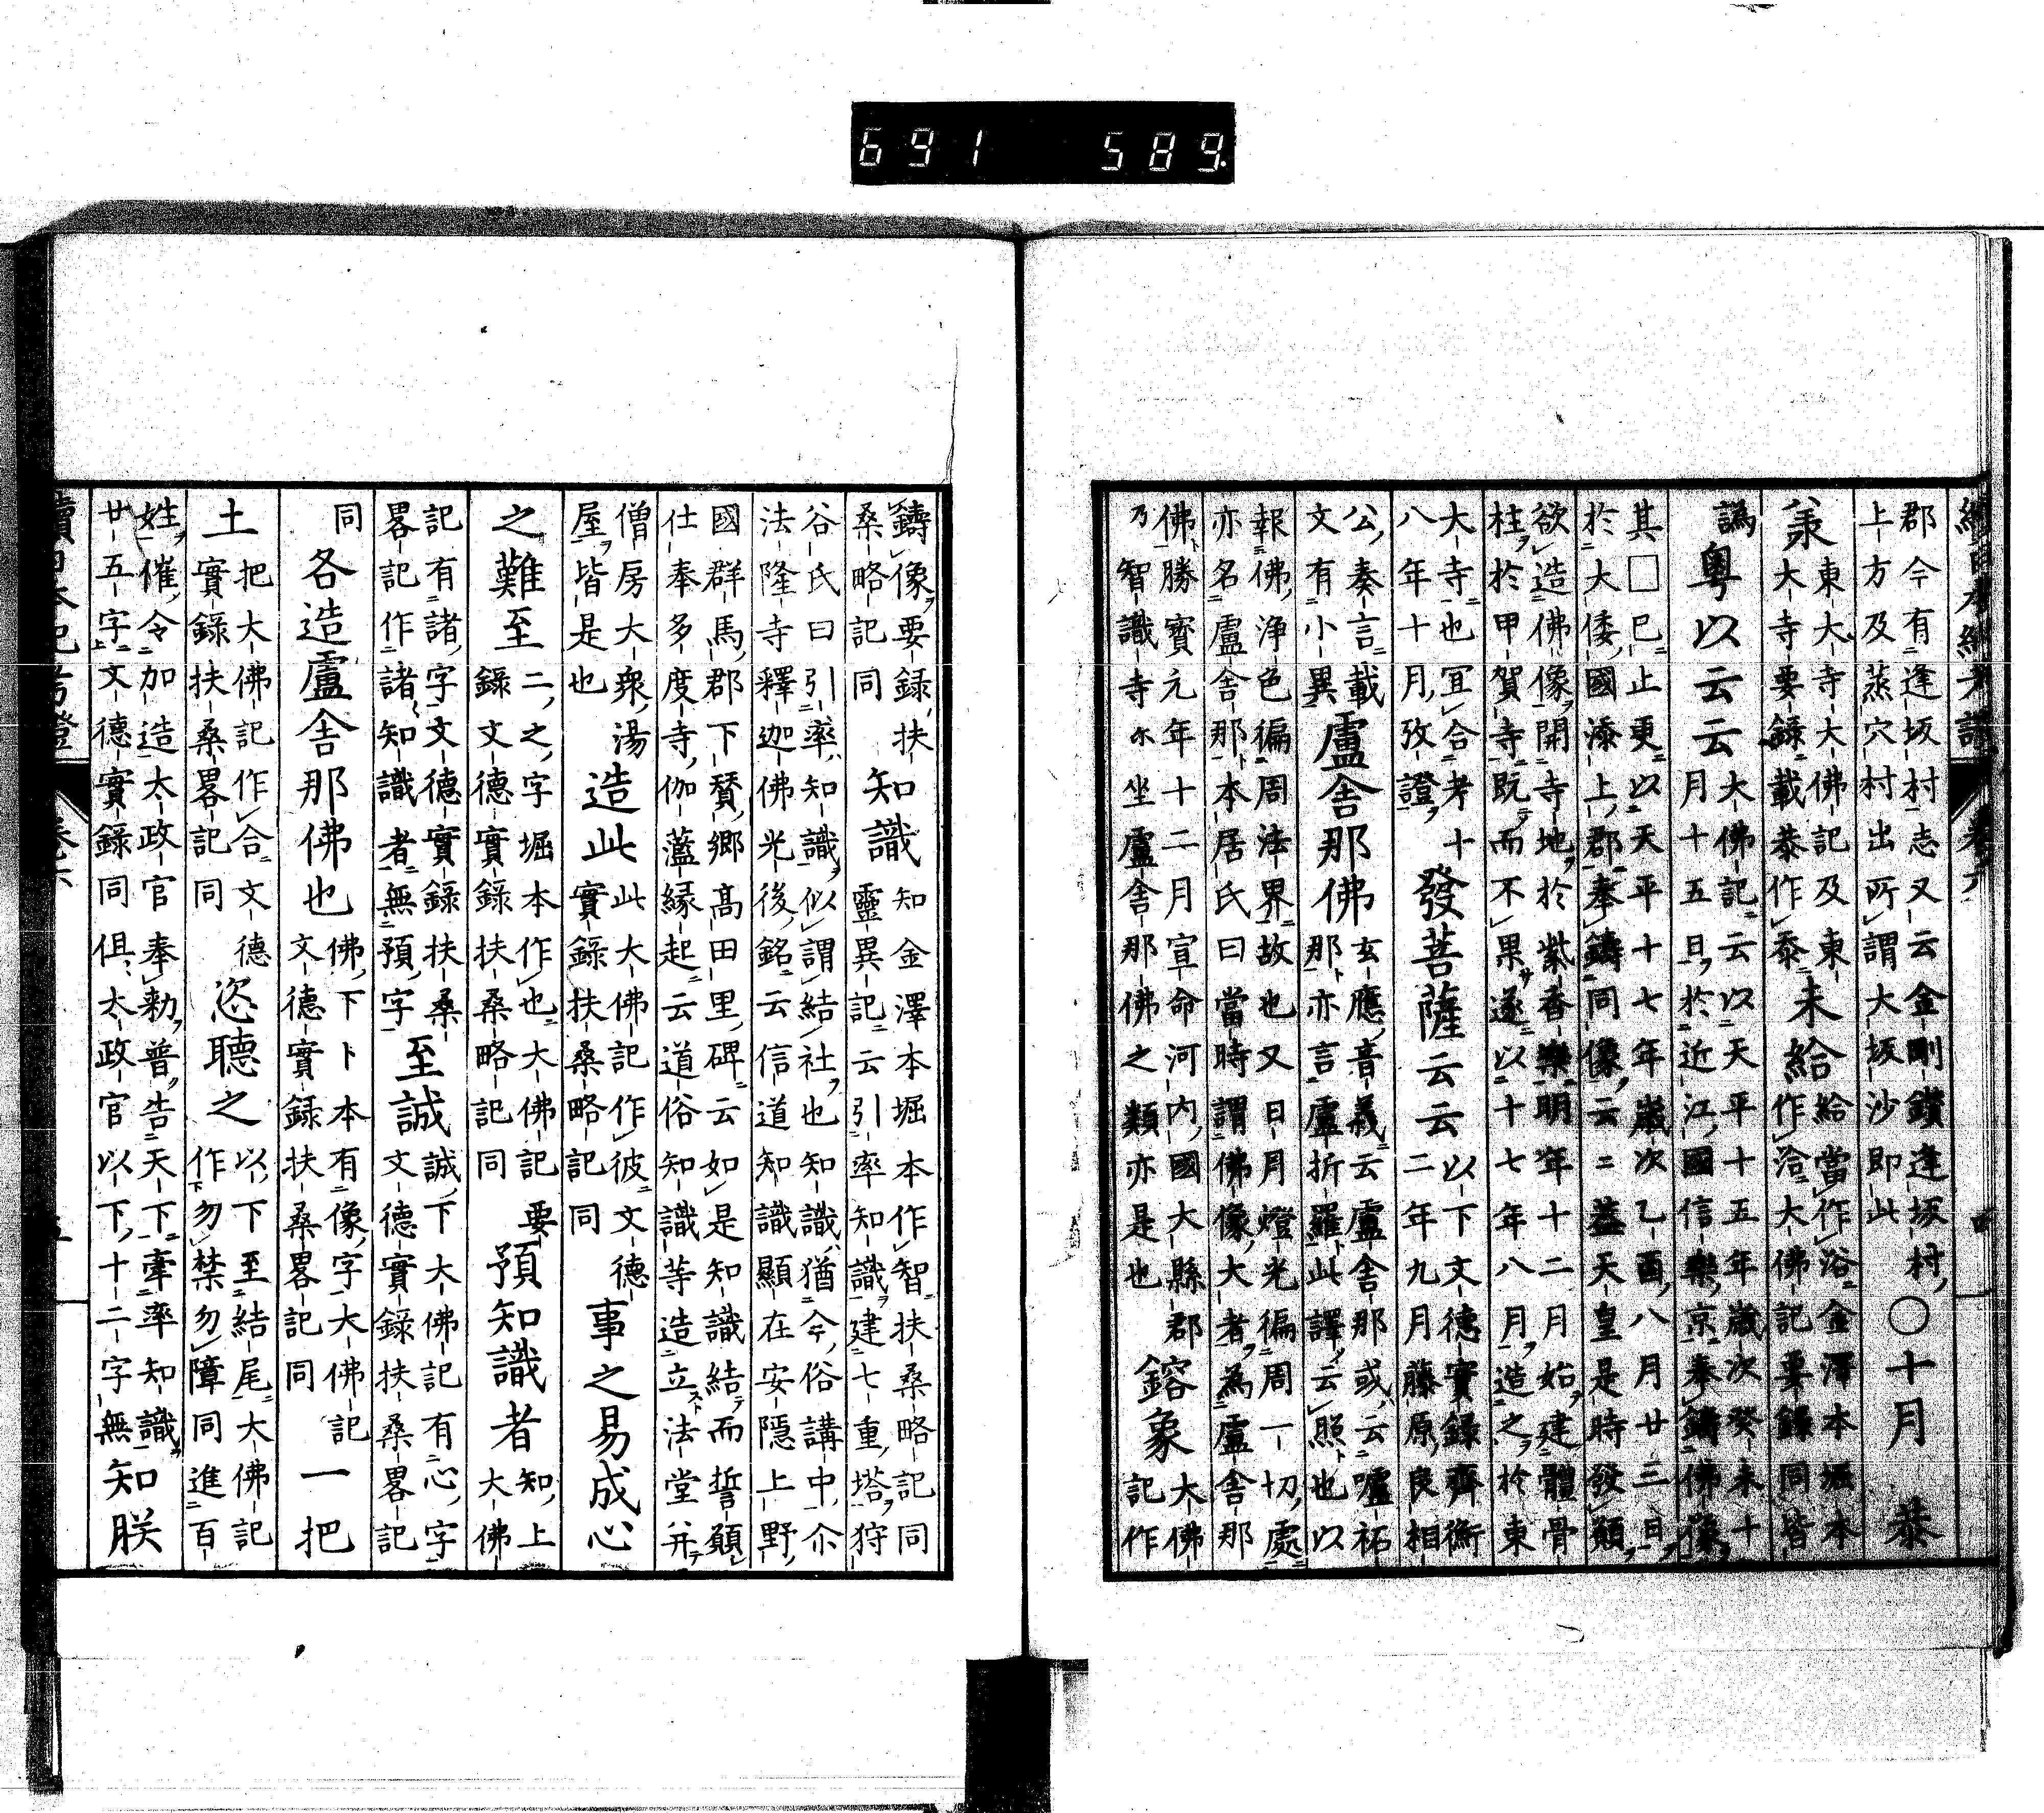 續日本紀考證 卷六 四
郡今有逢坂村志又云金剛鑚逢坂村
上方及蒸穴村出所謂大坂沙即此 〇十月 恭
東大寺大佛記及東
大寺要録載恭作泰 未給 給當作浴金澤本堀本
作洽大佛記要録同皆
譌 粤以云云 大佛記云以天平十五年歳次癸未十
月十五日於近江國信樂京奉鑄佛像
其□巳止更以天平十七年歳次乙酉八月廿三日
於大倭國添上郡奉鑄同像云二蓋天皇是時發願
欲造佛像開寺地於紫香樂明年十二月始建體骨
柱於甲賀寺既而不果遂以十七年八月造之於東
大寺也宜合考十
八年十月攷證 發菩薩云云 以下文德實録齊衡
二年九月藤原良相
公奏言載
文有小異 盧舎那佛 玄應音義云盧舎那或云嚧祏
那亦言盧折羅此譯云照也以
報佛浄色徧周法界故也又日月燈光徧周一切處
亦名盧舎那本居氏曰當時謂佛像大者為盧舎那
佛勝寳元年十二月宣命河内國大縣郡
乃智識寺尓坐盧舎那佛之類亦是也 鎔象 大佛
記作
鑄像要録扶
桑略記同 知識 知金澤本堀本作智扶桑略記同
靈異記云引率知識建七重塔狩
谷氏曰引率知識似謂結社也知識猶今俗講中尒
法隆寺釋迦佛光後銘云信道知識顯在安隠上野
國群馬郡下賛郷高田里碑云如是知識結而誓願
仕奉多度寺伽藍縁起云道俗知識等造立法堂并
僧房大衆湯
屋皆是也 造此 此大佛記作彼文德
實録扶桑略記同 事之易成心
之難至 二之字堀本作也大佛記要
録文德實録扶桑略記同 預知識者 知上
大佛
記有諸字文德實録扶桑
畧記作諸知識者無預字 至誠 誠下大佛記有心字
文德實録扶桑畧記
同 各造盧舎那佛也 佛下卜本有像字大佛記
文德實録扶桑畧記同 一把
土 把大佛記作合文德
實録扶桑畧記同 恣聽之 以下至結尾大佛記
作勿禁勿障同進百
姓催令加造太政官奉勅普告天下牽率知識
廿五字文德實録同但太政官以下十二字無 知朕
續日本紀考證 卷六 五